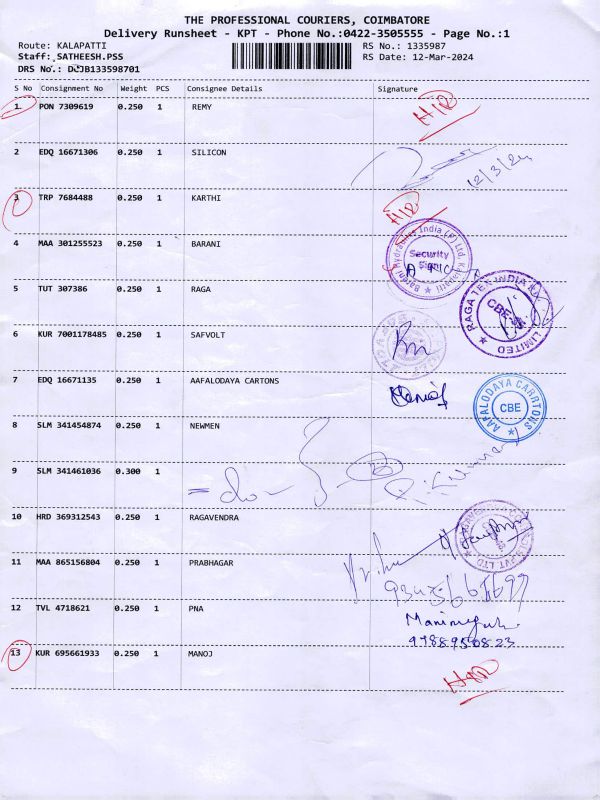 THE PROFESSIONAL COURIERS, COIMBATORE
Delivery Runsheet - KPT - Phone No.:0422-3505555 - Page No.:1
Route: KALAPATTI RS No.: 1335987
Staff: SATHEESH.PSS RS Date: 12-Mar-2024
DRS No.: DJB133598701
S No Consignment No Weight PCS Consignee Details Signature
1 PON 7309619 0.250 1 REMY
2 EDQ 16671306 0.250 1 SILICON
12/3/24
3 TRP 7684488 0.250 1 KARTHI
4 MAA 301255523 0.250 1 BARANI
Barani Hydraulics India (P) Ltd, Kalapatti
Security
5 TUT 307386 0.250 1 RAGA
LIMITED
6 KUR 7001178485 0.250 1 SAFVOLT
7 EDQ 16671135 0.250 1 AAFALODAYA CARTONS
AAFALODAYA CARRTONS
CBE
8 SLM 341454874 0.250 1 NEWMEN
9 SLM 341461036 0.300 1
= do -
10 HRD 369312543 0.250 1 RAGAVENDRA
11 MAA 865156804 0.250 1 PRABHAGAR
12 TVL 4718621 0.250 1 PNA
9988950823
13 KUR 695661933 0.250 1 MANOJ